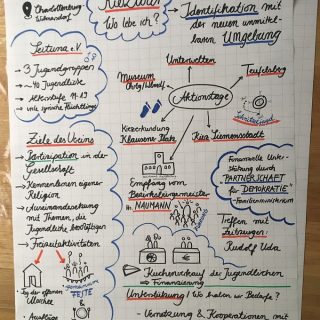 Charlottenburg
Wilmersdorf
Kiezkultur
Wo lebe ich?
Identifikation mit
der neuen unmittel-
baren Umgebung
e.V
→ 3 Jugendgruppen
→ ~40 Jugendliche
→ Altersstufe 11-23
→ viele syrische Flüchtlinge
Unterwelten
Museum
Teufelsberg
Aktionstage
Kiezerkundung
Klausener Platz
Kiez Siemensstadt
Ziele des Vereins
→ Partizipation in der
Gesellschaft
→ Kennenlernen eigener
Religion
→ Auseinandersetzung
mit Themen, die
Jugendliche beschäftigen
→ Freizeitaktivitäten
Empfang vom
Bezirksbürgermeister
Hr. NAUMANN
Finanzielle Unter-
stützung durch
"PARTNERSCHAFT
für
DEMOKRATIE"
- Familienministerium
Treffen mit
Zeitzeugen:
Rudolf Uda
FESTE
• Tag der offenen
Moschee
• Ausflüge
Kuchenverkauf der Jugendlichen
→ Finanzierung
Unterstützung / Wo haben wir Bedarfe?
- Vernetzung & Kooperationen mit